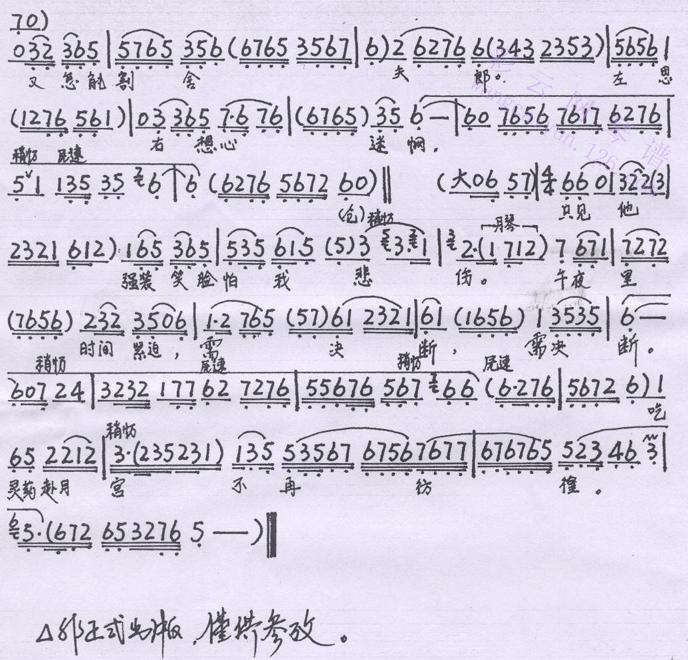 70)
032 365 | 5765 356 (6765 3567 | 6) 2 6276 6 (343 2353) | 5656 1
又 怎能割 舍 夫 郎。 左 思
(1276 561) | 03 365 7·6 76 | (6765) 35 6 — | 60 7656 7617 6276 |
右 想心 迷 惘。
稍快 尾速
5 1 135 35 6 | 6 (6276 5672 60) ‖ (大06 57) | 66 01 322(3 |
(仓) 稍快 只见 他
2321 612) 165 365 | 535 615 (5) 3 3·1 | 2·(1 712) 7 671 | 7272
月琴
强装 笑脸怕 我 悲 伤。 午夜 里
(7656) 232 3506 | 1·2 765 (57) 61 2321 | 61 (1656) 1 3535 | 6 —
时间 紧迫, 需 决 断, 需决 断。
稍快 尾速 稍快 尾速
607 24 | 3232 177 62 7276 | 55676 567 66 (6·276 | 5672 6) 1
吃
稍快
65 2212 | 3·(235231) 135 53567 67567677 | 676765 523 46 3 |
灵药赴月 宫 不 再 彷 徨。
5·(672 653276 5 — —) ‖
△非正式出版,仅供参考。